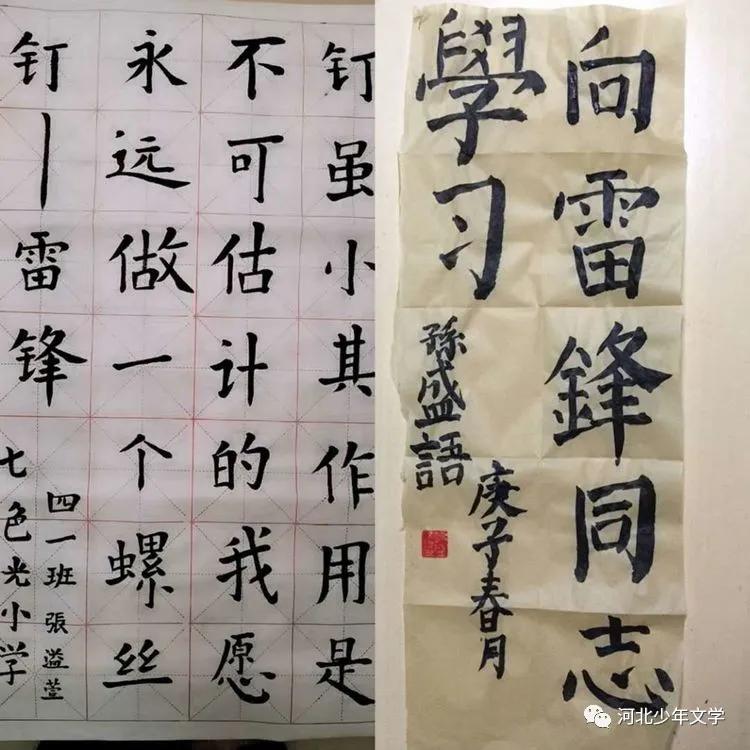 钉虽小其作用是
不可估计的我愿
永远做一个螺丝
钉—雷锋
四一班張溢萱
七色光小学
向雷鋒同志
學习
庚子春月
孫盛語
河北少年文学